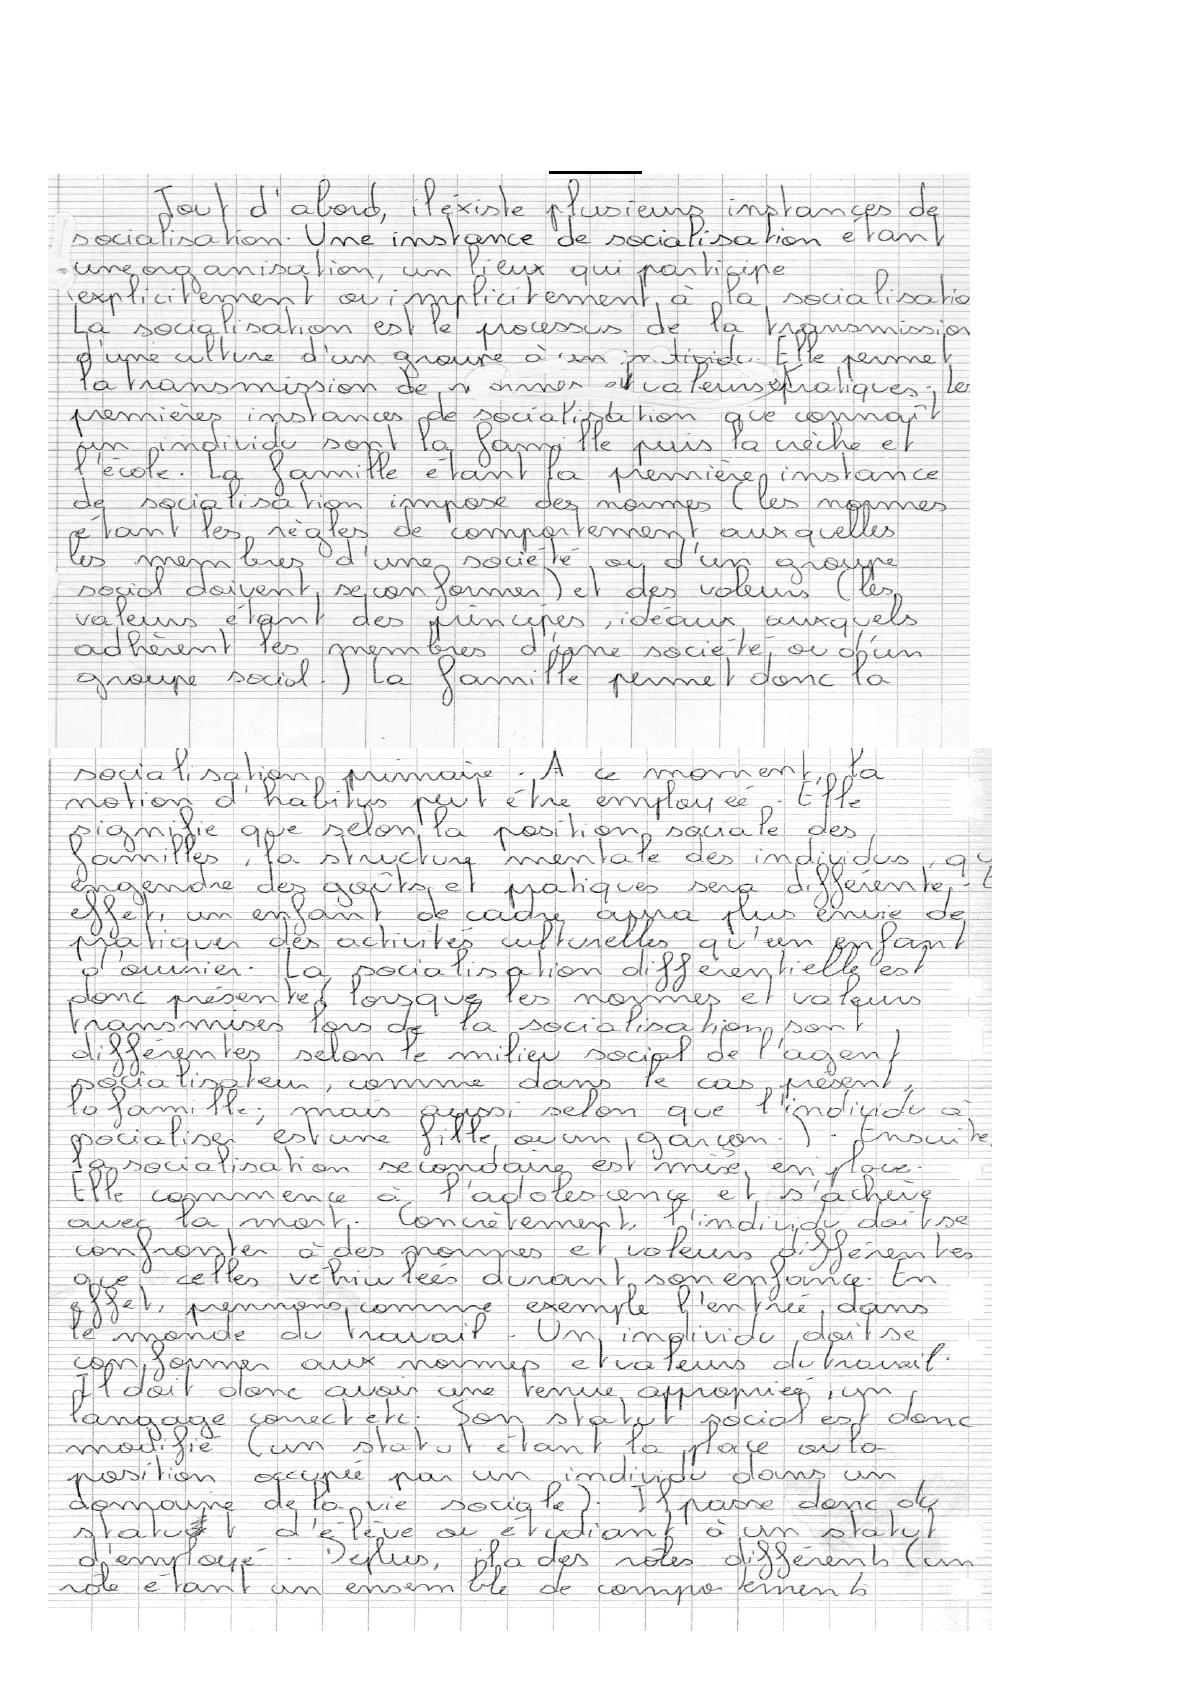 Tout d'abord, il existe plusieurs instances de
socialisation. Une instance de socialisation étant
une organisation, un lieux qui participe
explicitement ou implicitement à la socialisatio
La socialisation est le processus de la transmission
d'une culture d'un groupe à un individu. Elle permet
la transmission de normes et valeurs, pratiques. les
premières instances de socialistation que connaît
un individu sont la famille puis la crèche et
l'école. La famille étant la première instance
de socialisation impose des normes (les normes
étant les règles de comportement auxquelles
les membres d'une société ou d'un groupe
social doivent se conformer) et des valeurs (les
valeurs étant des principes, idéaux auxquels
adhèrent les membres d'une société ou d'un
groupe social.) La famille permet donc la
socialisation primaire. A ce moment, la
notion d'habitus peut être employée. Elle
signifie que selon la position sociale des
familles, la structure mentale des individus, qu
engendre des goûts et pratiques sera différente. E
effet, un enfant de cadre aura plus envie de
pratiquer des activités culturelles qu'un enfant
d'ouvrier. La socialisation différentielle est
donc présente (lorsque les normes et valeurs
transmises lors de la socialisation sont
différentes selon le milieu social de l'agent
socialisateur, comme dans le cas présent,
la famille; mais aussi selon que l'individu à
socialiser est une fille ou un garçon.). Ensuite,
la socialisation secondaire est mise en place.
Elle commence à l'adolescence et s'achève
avec la mort. Concrètement, l'individu doit se
confronter à des normes et valeurs différentes
que celles véhiculées durant son enfance. En
effet, prennons comme exemple l'entrée dans
le monde du travail. Un individu doit se
conformer aux normes et valeurs du travail.
Il doit donc avoir une tenue appropriée, un
langage correct etc. Son statut social est donc
modifié (un statut étant la place ou la
position occupée par un individu dans un
domaine de la vie sociale). Il passe donc du
statut d'élève ou étudiant à un statut
d'employé. De plus, il a des rôles différents (un
rôle étant un ensemble de comportements